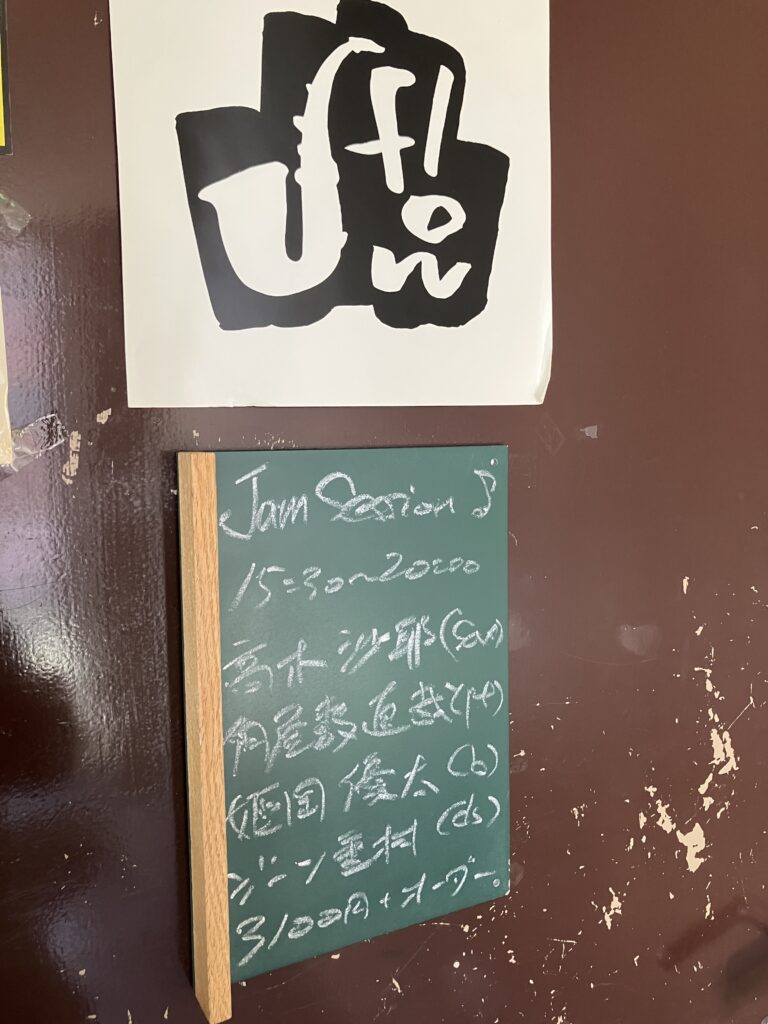 flow
Jam Session♪
15:30~20:00
高木 沙耶(sax)
角屋敷 直哉(pf)
姫田 優太(b)
ジーン重村(ds)
3100円+オーダー